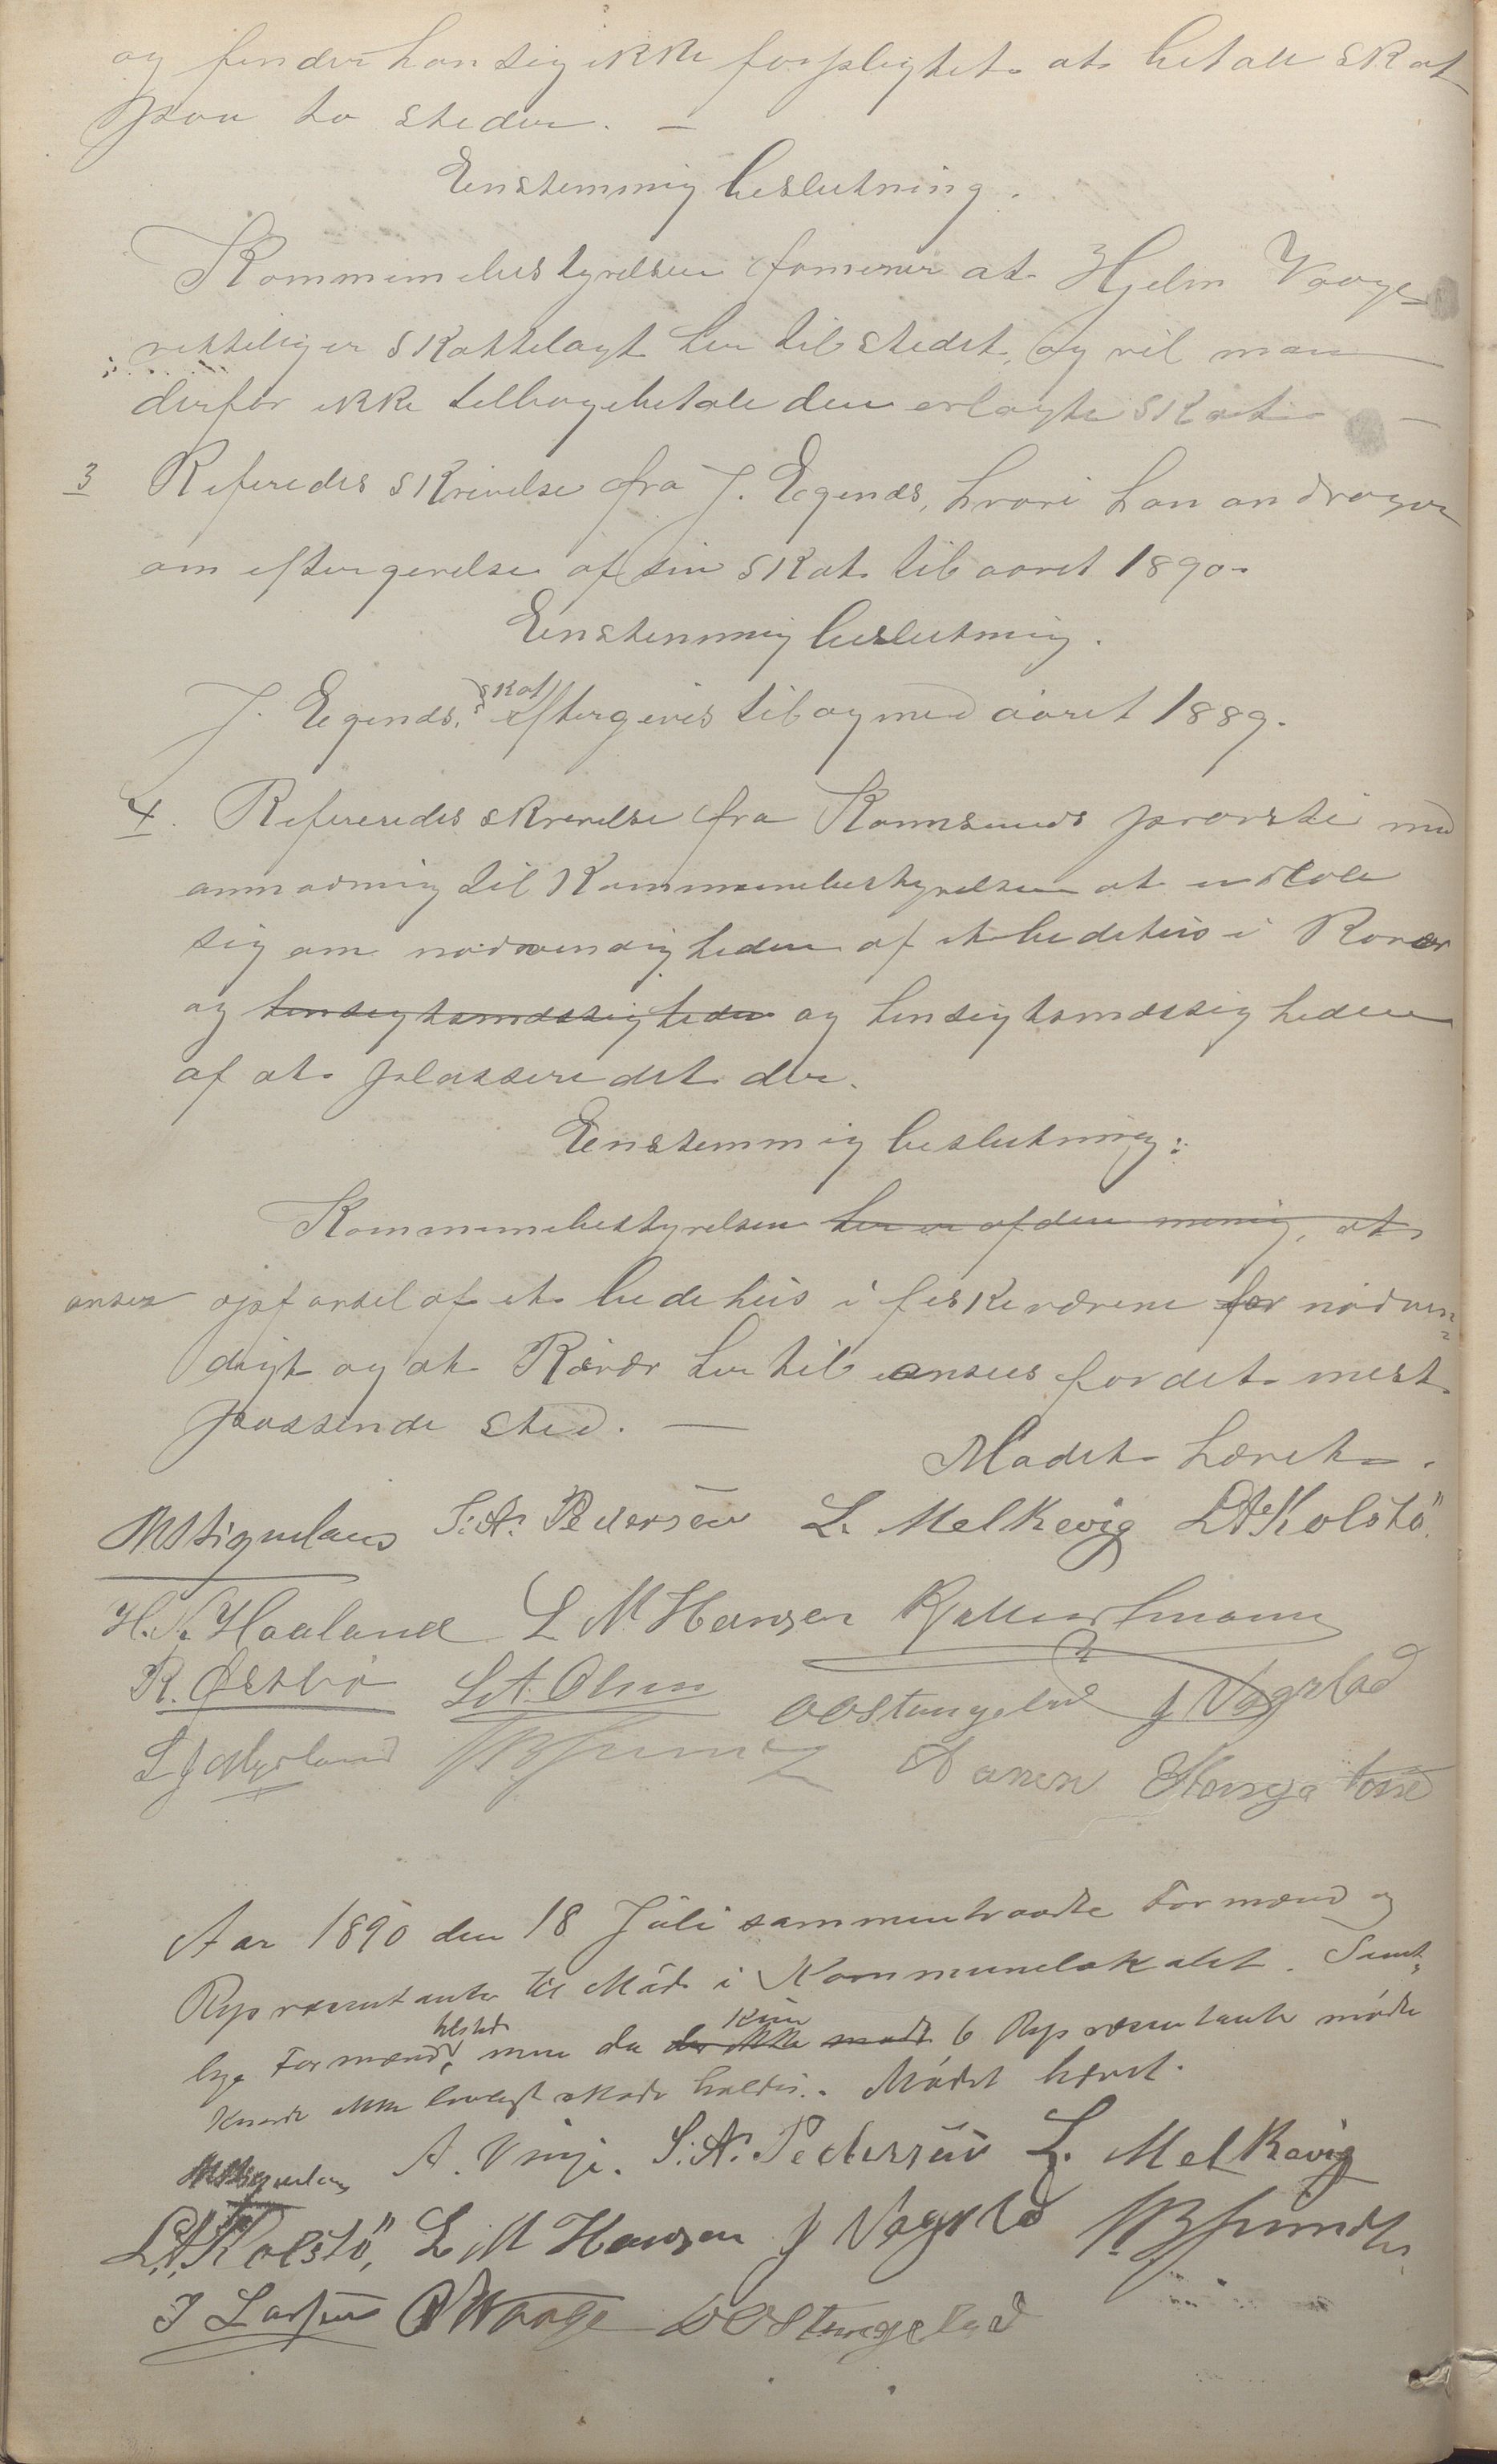 og finder han sig ikke forpligtet at betale skat
paa to steder. —
Enstemmig beslutning.
Kommunebestyrelsen formener at Hjelm Waage
retteligen skattelagt her til stedet, og vil man
derfor ikke tilbagebetale den erlagte skat. —
3 Referedes skrivelse fra J. Egends, hvori han andrager
om eftergivelse af sin skat til aaret 1890.
Enstemmig beslutning.
J. Egends. skat eftergives til og med aaret 1889.
4. Refereredes skrivelse fra Karmsunds provsti med
anmodning til Kommunebestyrelsen at udtale
sig om nødvendigheden af et bedehus i Rovær
og hensigtsmæssigheden og hensigtsmæssigheden
af at plassere det der.
Enstemmig beslutning:
Kommunebestyrelsen her er af den mening, at
anser opførsel af et bedehus i fiskeværene for nødven=
digt og at Røvær hertil ansees for det mest
passende sted. —
Mødet hævet.
S. N. Pedersen L. Melkevig L A Kolstø
H. N. Haaland L M Hansen
R. Østbø L. A. Olsen O O Stangeland J Vagelad
L J Myrland
Aar 1890 den 18 Juli sammentraadte Formænd og
Repræsentanter til Møde i Kommunelokalet. Samt=
lige Formænd tilstede, men da der ikke mødte kun 6 Repræsentanter mødte
kunde ikke lovligt møde holdes. Mødet hævet.
A. Vinje. S. N. Pedersen L. Melkevig
L. A. Kolstø, L M Hansen J Vagelad
J Larsen O W Waage O O Stangeland